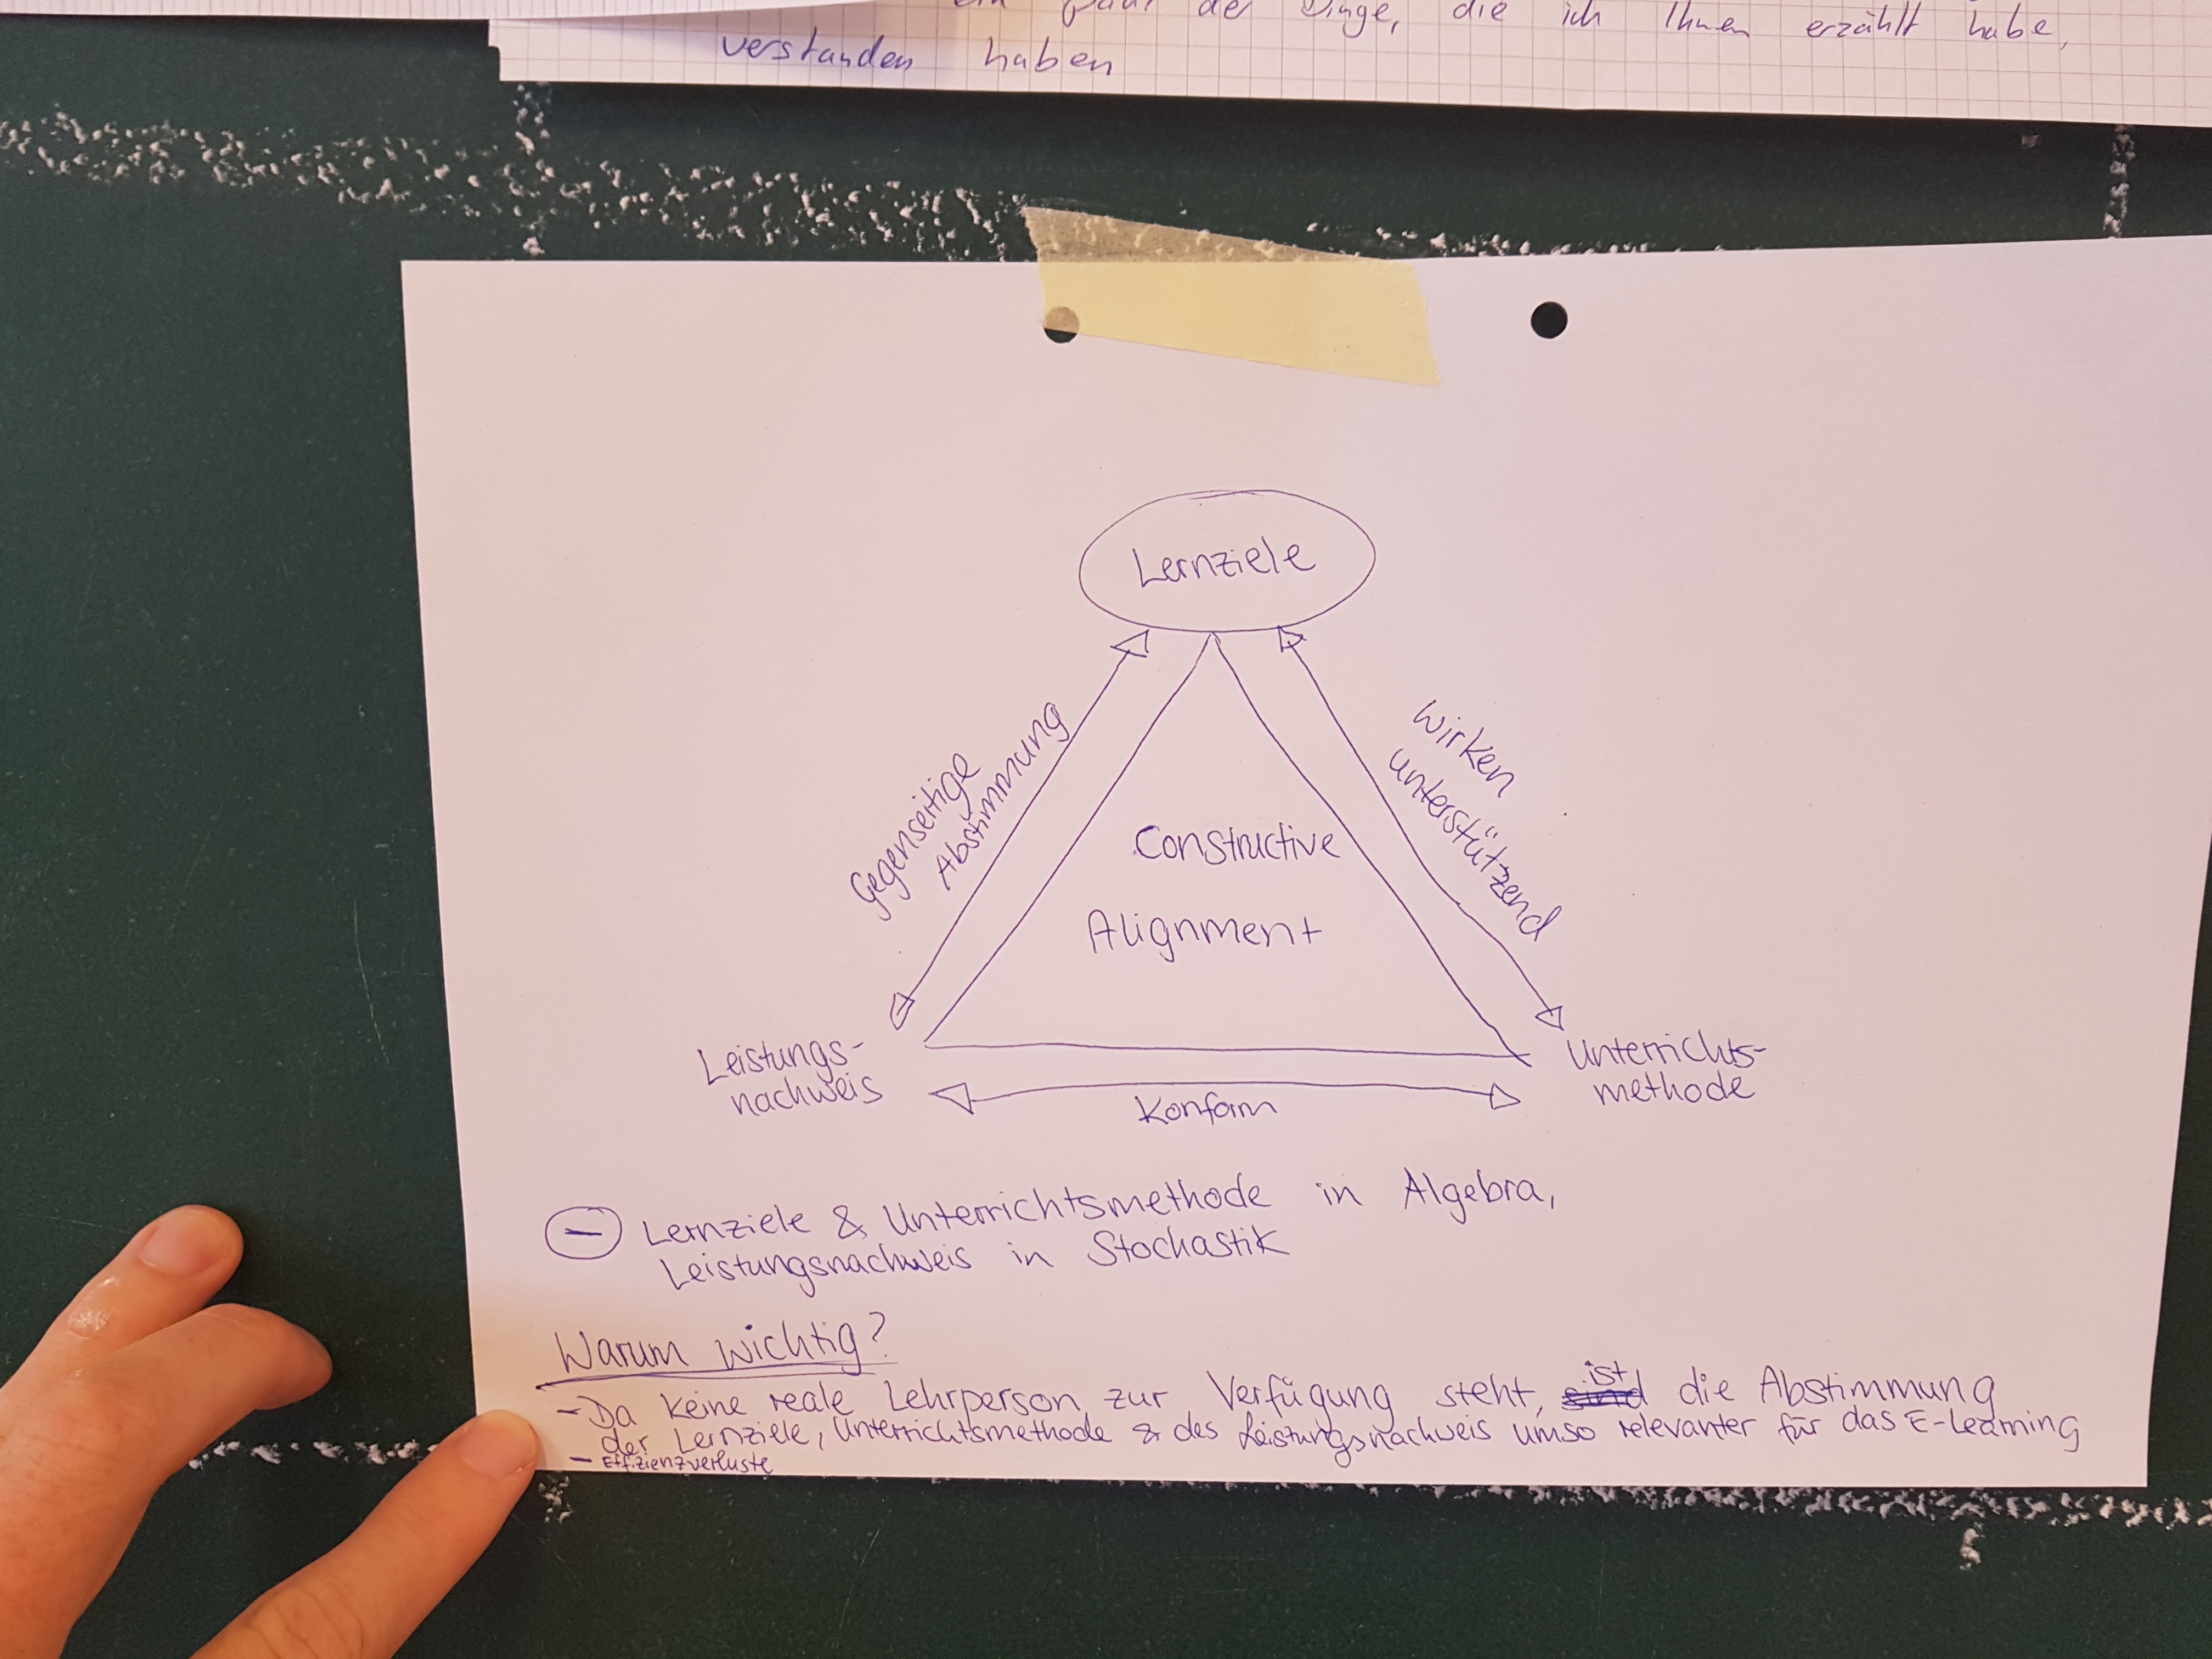 ein paar der Dinge, die ich Ihnen erzählt habe,
verstanden haben
Lernziele
Gegenseitige
Abstimmung
Wirken
unterstützend
Constructive
Alignment
Leistungs-
nachweis
Unterrichts-
methode
Konform
- Lernziele & Unterrichtsmethode in Algebra,
Leistungsnachweis in Stochastik
Warum wichtig?
- Da keine reale Lehrperson zur Verfügung steht, sind ist die Abstimmung
der Lernziele, Unterrichtsmethode & des Leistungsnachweis umso relevanter für das E-Learning
- Effizienzverluste